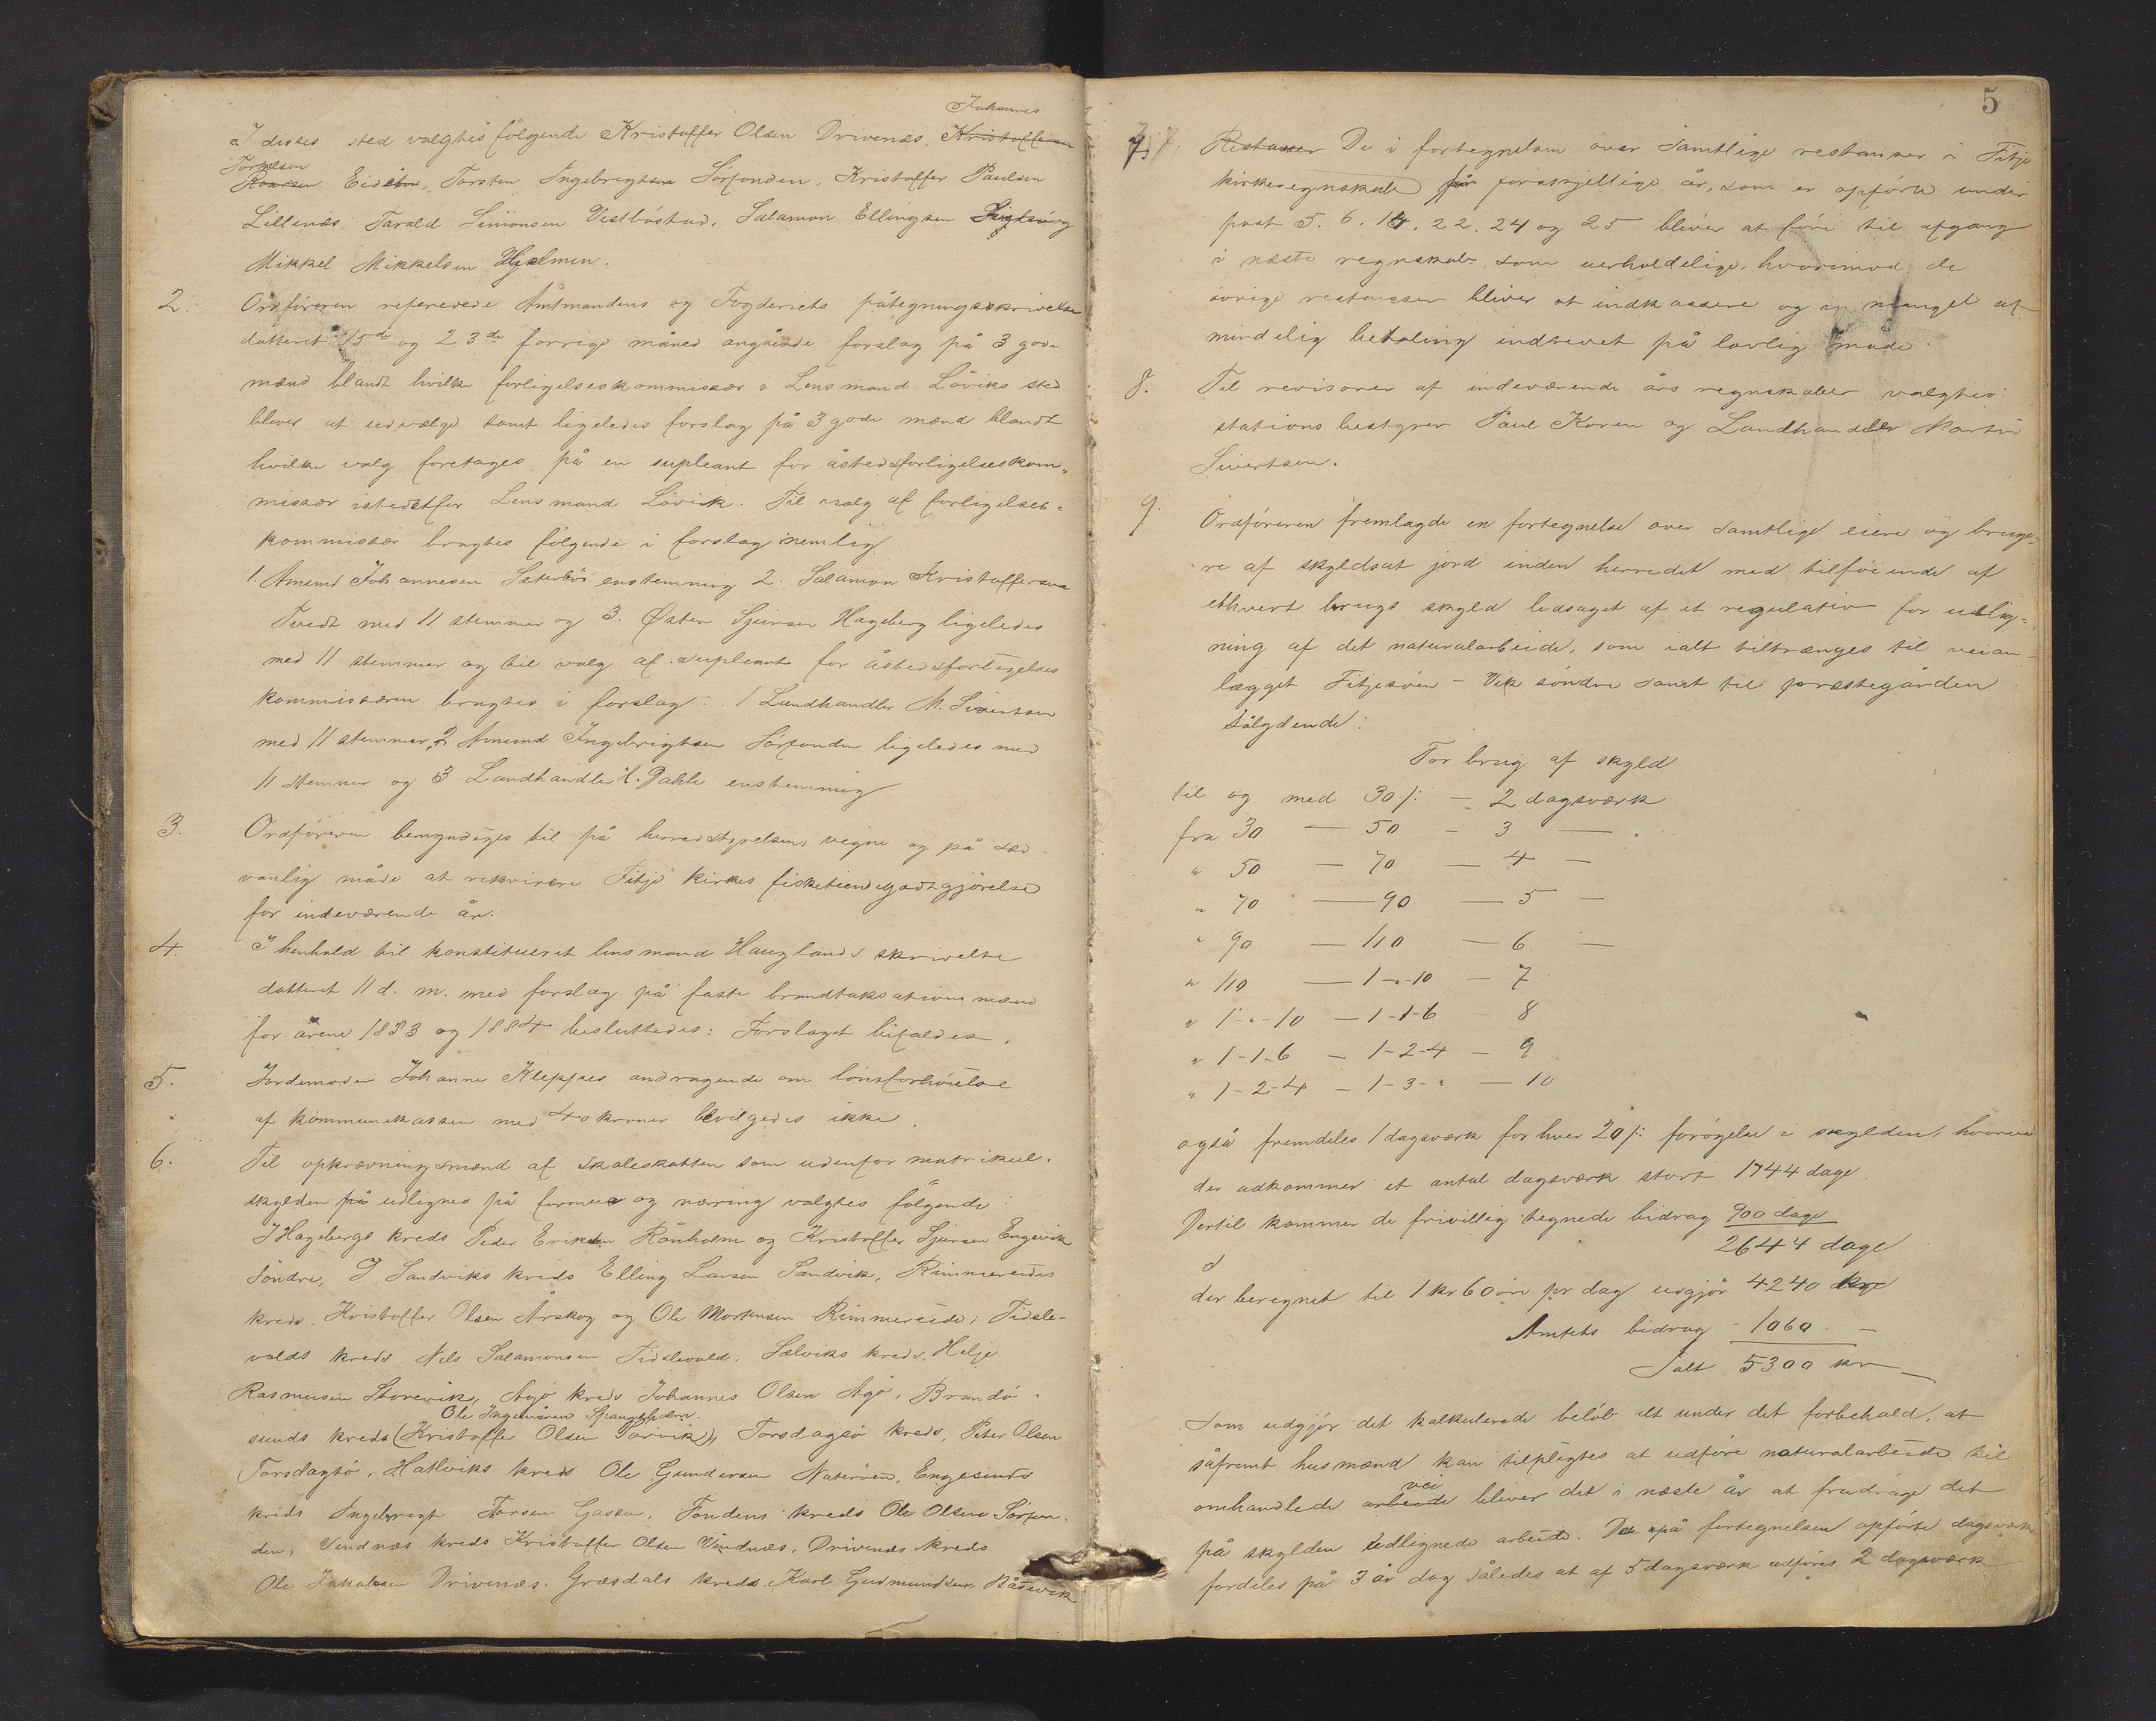 Johannes
I disses sted valgtes følgende Kristoffer Olsen Drivenæs, Kristoffersen
Torkelsen
Eide, Torsten Ingebrigtsen Sørfonden, Kristoffer Paulsen
Lillenæs Tarald Simonsen Vestbøstad, Salamon Ellingsen og
Mikkel Mikkelsen Hjelmen.
2. Ordføreren refererede Amtmandens og Fogderiets påtegningsskrivelse
datteret 15de og 23de forrige måned angående forslag på 3 gode
mænd blandt hvilke forligelseskommissær i Lensmand Løviks sted
bliver at udvælge samt ligeledes forslag på 3 gode mænd blandt
hvilke valg foretages på en supleant for åstedsforligelseskom-
missær istedetfor Lensmand Løvik. Til valg af forligelses-
kommissær bragtes følgende i forslag nemlig
1. Amund Johannesen Sæterbø enstemmig 2. Salamon Kristoffersen
Tvedt med 11 stemmer og 3. Østen Sjursen Hageberg ligeledes
med 11 stemmer og til valg af supleant for åstedsforligelses
kommissæren bragtes i forslag: 1 Landhandler M. Sivertsen
med 11 stemmer, 2 Amund Ingebrigtsen Sørfonden ligeledes med
11 stemmer og 3 Landhandler H. Dahle enstemmig
3. Ordføreren bemyndiges til på herredstyrelsens vegne og på sæd-
vanlig måde at rekvirere Fitje kirkes fisketiendegodtgjørelse
for indeværende år.
4. I henhold til konstitueret lensmand Hauglands skrivelse
datteret 11 d. m. med forslag på faste brandtaksationsmænd
for årene 1883 og 1884 besluttedes: Forslaget bifaldes.
5. Jordemoder Johanne Kleppes andragende om lønsforhøielse
af kommunekassen med 40 kroner bevilgedes ikke.
6. Til opkrævningsmænd af skoleskatten som udenfor matrikul-
skylden på udlignes på formue og næring valgtes følgende:
I Hagebergs kreds Peder Eriksen Rønholm og Kristoffer Sjursen Engevik
Søndre, I Sandviks kreds Elling Larsen Sandvik, Rimmereides
kreds, Kristoffer Olsen Årskog og Ole Mortensen Rimmereide; Tidsle-
volds kreds Nils Salamonsen Tidslevold, Sælviks kreds, Helje
Rasmusen Storevik, Agø kreds Johannes Olsen Agø, Brandø-
Ole Ingemåren Spangeholm.
sunds kreds (Kristoffer Olsen Torvik), Torsdagsø kreds, Peter Olsen
Torsdagsø, Hatlviks kreds Ole Gundersen Naterøen, Engesunds
kreds Ingebrigt Gassen, Fondens kreds Ole Olsen Sørfon-
den, Vindnæs kreds Kristoffer Olsen Vindnæs, Drivenæs kreds
Ole Jakobsen Drivenæs. Græsdals kreds Karl Gudmundsen Båsevik
5
7. 7. Restanser De i fortegnelsen over samtlige restanser i Fitje
kirkeregnskab for forskjellige år, som er opførte under
post 5. 6. 14. 22. 24 og 25 bliver at føre til afgang
i næste regnskab som uerholdelige, hvorimod de
øvrige restanser bliver at indkassere og i mangel af
mindelig betaling inddrevet på lovlig måde.
8. Til revisorer af indeværende års regnskaber valgtes:
stationsbestyrer Paul Koren og Landhandler Martin
Sivertsen.
9. Ordføreren fremlagde en fortegnelse over samtlige eiere og bruge-
re af skyldsat jord inden herredet med tilføiende af
ethvert brugs skyld ledsaget af et regulativ for udlig-
ning af det naturalarbeide, som ialt tiltrænges til veian-
lægget Fitjesøen - Vik søndre samt til præstegården
sålydende:
For brug af skyld
til og med 30 /: - 2 dagsværk
fra 30 — 50 - 3 —
" 50 — 70 — 4 —
" 70 — 90 — 5 —
" 90 — 110 — 6 —
" 110 — 1-"-10 — 7
" 1-"-10 — 1-1-6 8
" 1-1-6 — 1-2-4 — 9
" 1-2-4 — 1-3-" — 10
også fremdeles 1 dagsværk for hver 20 /: forøgelse i skylden, hvorved
der udkommer et antal dagsværk stort 1744 dage
Dertil kommer de frivillig tegnede bidrag 900 dage
2644 dage
der beregnet til 1 kr 60 øre pr dag udgjør 4240 kr
Amtets bidrag - 1060 —
Ialt 5300 kr
Som udgjør det kalkulerede beløb alt under det forbehold, at
såfremt husmænd kan tilpligtes at udføre naturalarbeide til
vei
omhandlede arbeide bliver det i næste år at fradrage det
på skylden udlignede arbeide. De på fortegnelsen opførte dagsværk
fordeles på 3 år dog således at af 5 dagsværk udføres 2 dagsværk